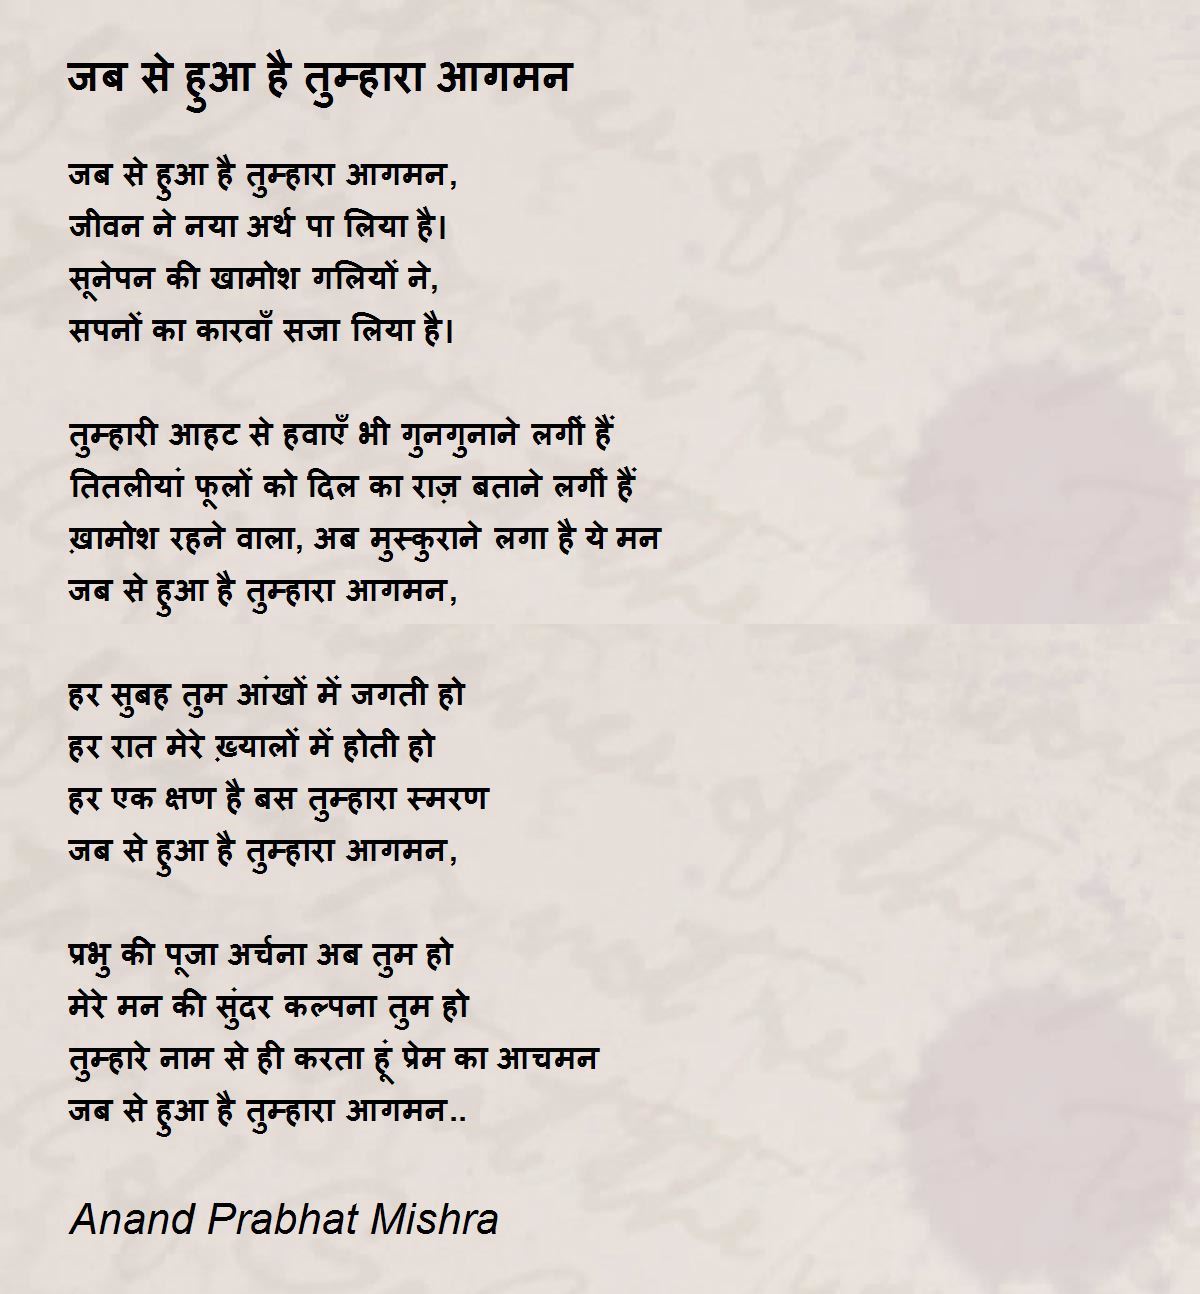 जब से हुआ है तुम्हारा आगमन
जब से हुआ है तुम्हारा आगमन,
जीवन ने नया अर्थ पा लिया है।
सूनेपन की खामोश गलियों ने,
सपनों का कारवाँ सजा लिया है।
तुम्हारी आहट से हवाएँ भी गुनगुनाने लगीं हैं
तितलीयां फूलों को दिल का राज़ बताने लगीं हैं
ख़ामोश रहने वाला, अब मुस्कुराने लगा है ये मन
जब से हुआ है तुम्हारा आगमन,
हर सुबह तुम आंखों में जगती हो
हर रात मेरे ख़्यालों में होती हो
हर एक क्षण है बस तुम्हारा स्मरण
जब से हुआ है तुम्हारा आगमन,
प्रभु की पूजा अर्चना अब तुम हो
मेरे मन की सुंदर कल्पना तुम हो
तुम्हारे नाम से ही करता हूं प्रेम का आचमन
जब से हुआ है तुम्हारा आगमन..
Anand Prabhat Mishra